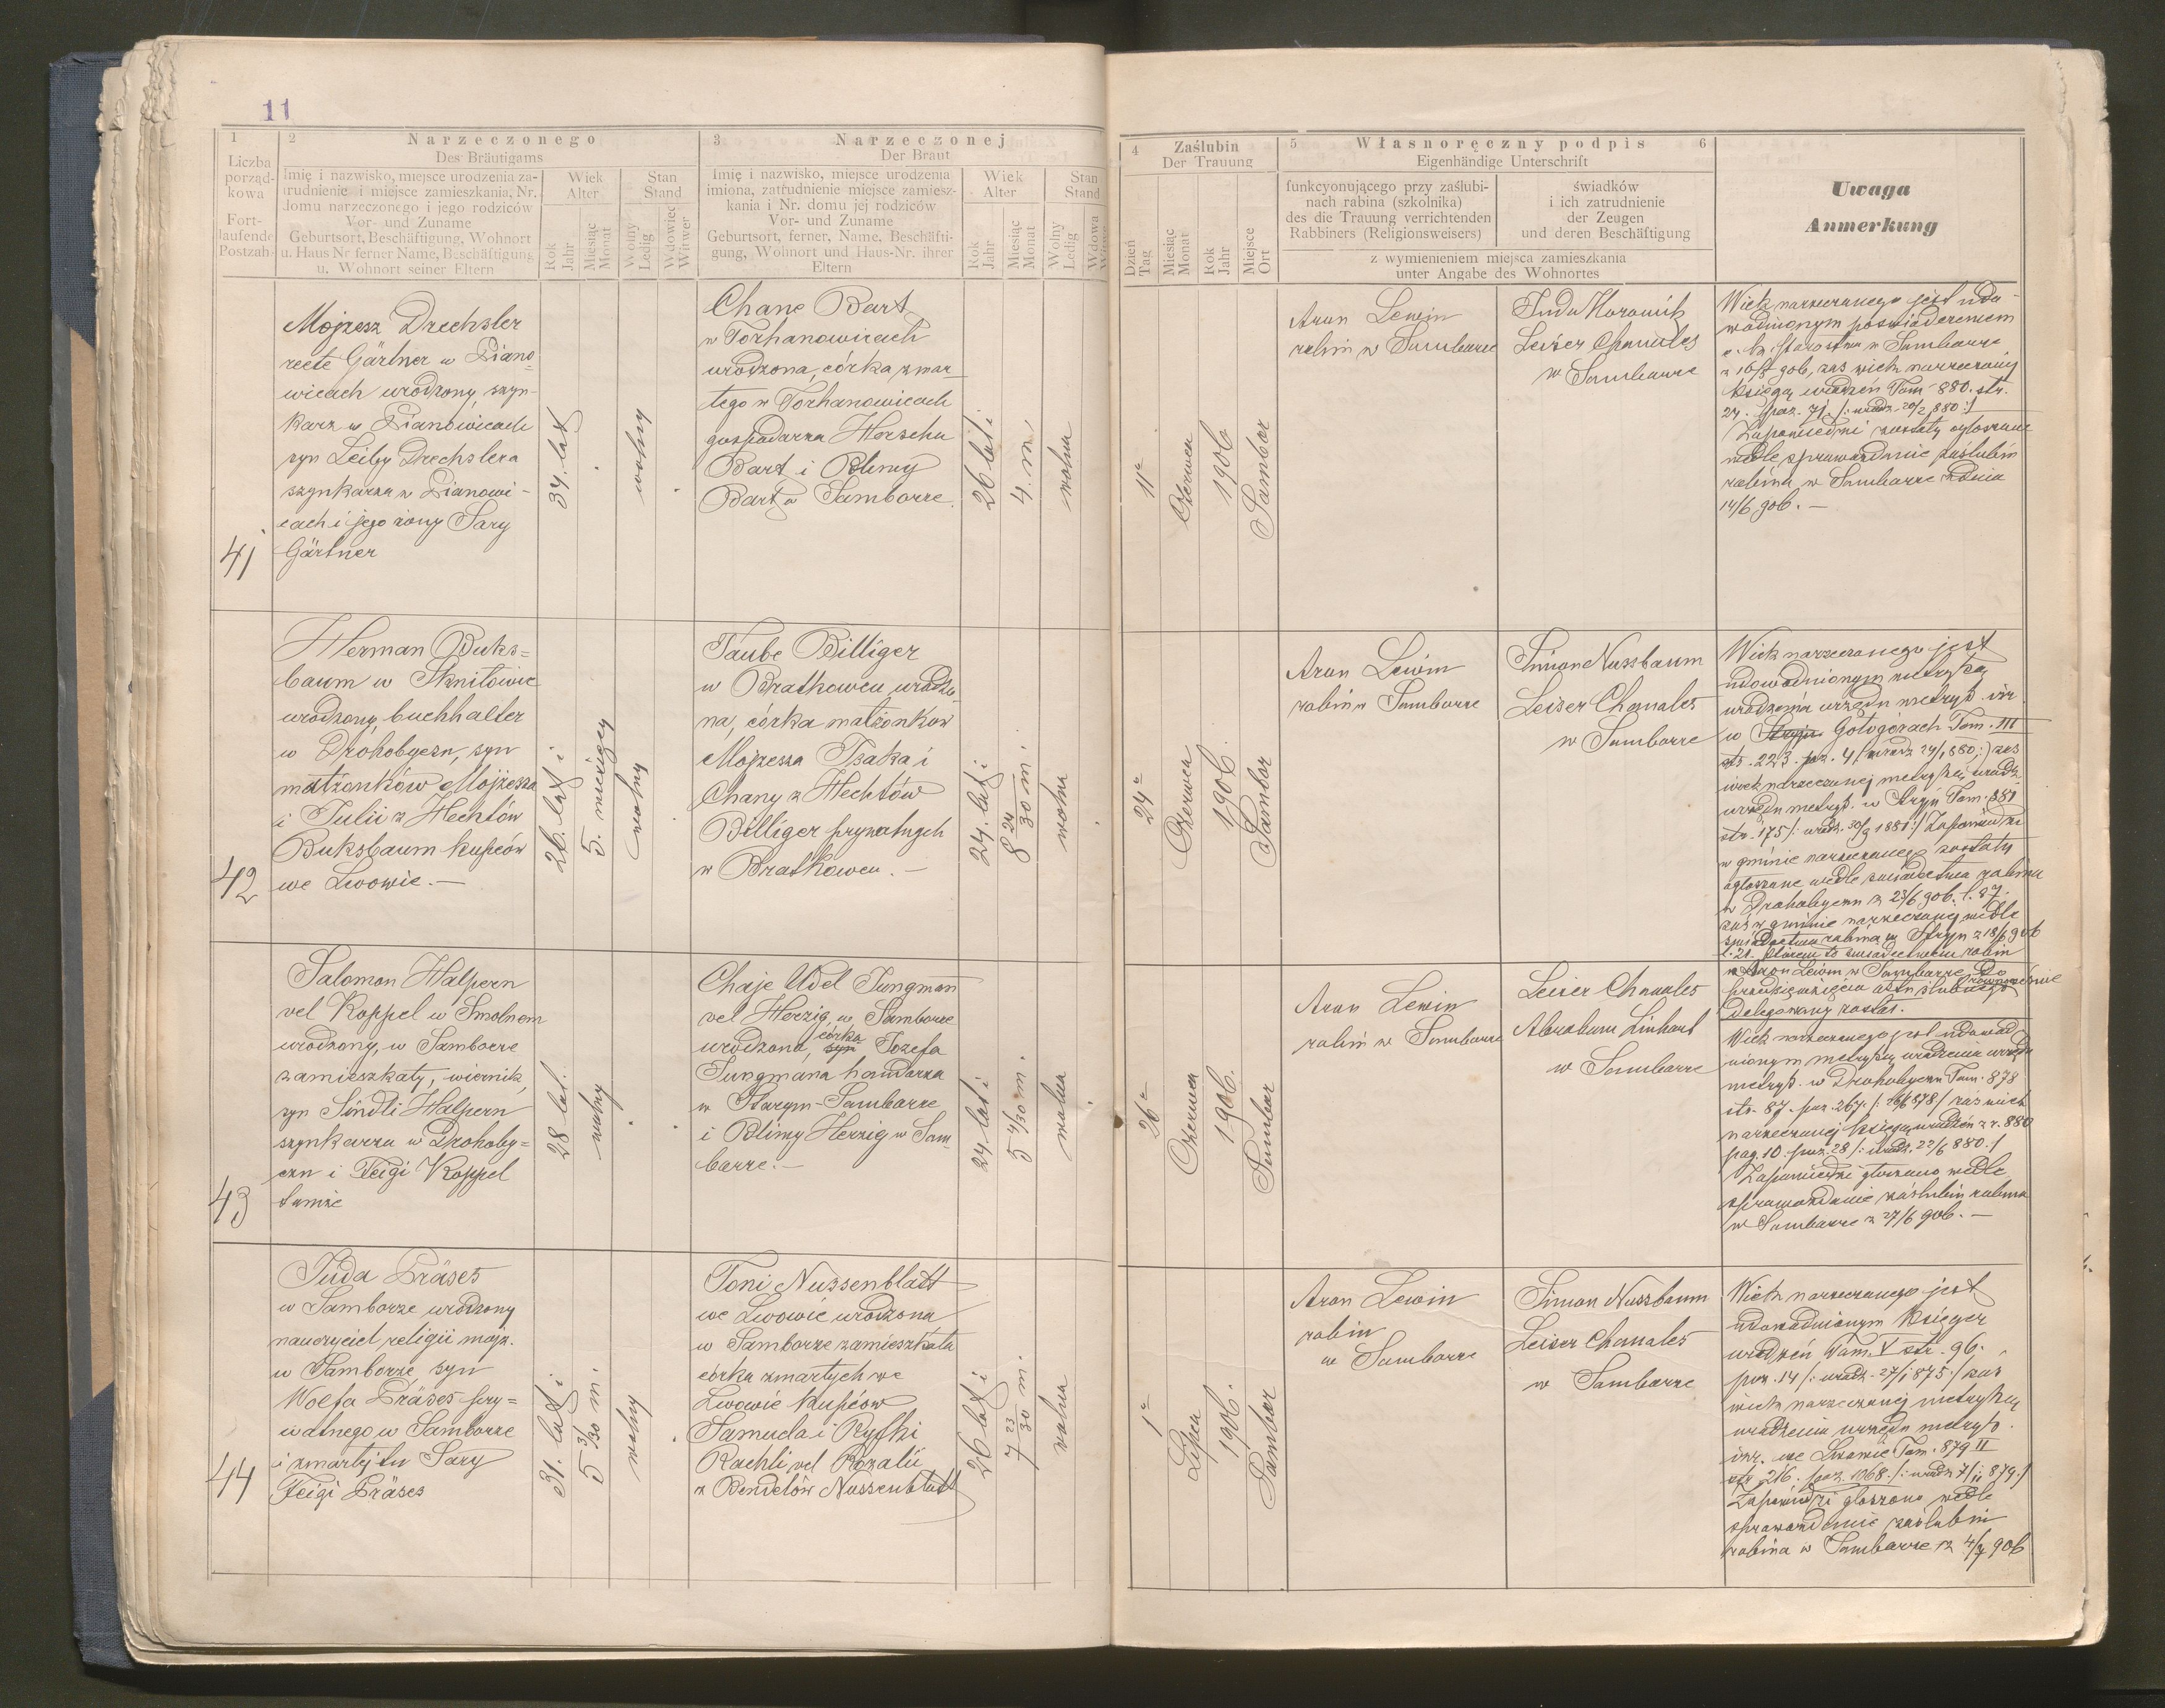 11
1
Liczba
porząd-
kowa
Fort-
laufende
Postzahl
2 Narzeczonego
Des Bräutigams
Imię i nazwisko, miejsce urodzenia za-
trudnienie i miejsce zamieszkania, Nr.
domu narzeczonego i jego rodziców
Vor- und Zuname
Geburtsort, Beschäftigung, Wohnort
u. Haus Nr ferner Name, Beschäftigung
u. Wohnort seiner Eltern
Wiek
Alter
Rok
Jahr
Miesiąc
Monat
Stan
Stand
Wolny
Ledig
Wdowiec
Witwer
3 Narzeczonej
Der Braut
Imię i nazwisko, miejsce urodzenia
imiona, zatrudnienie miejsce zamiesz-
kania i Nr. domu jej rodziców
Vor- und Zuname
Geburtsort, ferner, Name, Beschäfti-
gung, Wohnort und Haus-Nr. ihrer
Eltern
Wiek
Alter
Rok
Jahr
Miesiąc
Monat
Stan
Stand
Wolny
Ledig
Wdowa
4 Zaślubin
Der Trauung
Dzień
Tag
Miesiąc
Monat
Rok
Jahr
Miejsce
Ort
5 Własnoręczny podpis 6
Eigenhändige Unterschrift
funkcyonującego przy zaślubi-
nach rabina (szkolnika)
des die Trauung verrichtenden
Rabbiners (Religionsweisers)
świadków
i ich zatrudnienie
der Zeugen
und deren Beschäftigung
z wymienieniem miejsca zamieszkania
unter Angabe des Wohnortes
Uwaga
Anmerkung
41
Mojżesz Drechsler
recte Gärtner w Piano
wicach urodzony, szyn-
karz w Pianowicach
syn Leiby Drechslera
szynkarza w Pianowi-
cach i jego żony Sary
Gärtner
34. lat
wolny
Chane Bart
w Torhanowicach
urodzona, córka zmar-
łego w Torhanowicach
gospodarza Herscha
Bart i Blimy
Bart w Samborze.
26 lat i
4. m.
wolna
11go
Czerwca
1906
Sambor
Aron Lewin
rabin w Samborze
Juda Horowitz
Leiser Chamales
w Samborze
Wiek narzeczonego jest udo-
wodnionym poświadczeniem
c. k. Starostwa w Samborze
z 10/5 906, zaś wiek narzeczonej
księgą urodzeń Tom 880. str.
24. poz. 71. /: urodz. 20/2 880 :/
Zapowiedzi zostały ogłoszone
wedle sprawozdania zaślubin
rabina w Samborze z dnia
14/6 906. —
42
Herman Buks=
baum w Sknitowie
urodzony, buchhalter
w Drohobyczu, syn
małżonków Mojżesza
i Julii z Hechtów
Buksbaum kupców
we Lwowie. —
26. lat i
5. miesięcy
wolny
Taube Billiger
w Bratkowcu urodzo
na, córka małżonków
Mojżesza Isaka i
Chany z Hechtów
Billiger prywatnych
w Bratkowcu. —
24. lat i
8 24/30 m.
wolna
24go
Czerwca
1906.
Sambor
Aron Lewin
rabin w Samborze
Simon Nussbaum
Leiser Chamales
w Samborze
Wiek narzeczonego jest
udowodnionym metryką
urodzenia urzędu metryk. izr.
w Gołogórach Tom. III
str. 223. poz. 4 /: urodz 24/1 880 :/ zaś
wiek narzeczonej metryką urodz.
urzędu metryk. w Stryju Tom. 881
str. 175 /: urodz. 30/9 1881 :/ Zapowiedzi
w gminie narzeczonego zostały
ogłoszone wedle świadectwa rabina
w Drohobyczu z 23/6 906. l. 87.
zaś w gminie narzeczonej wedle
świadectwa rabina w Stryju z 18/6 906
l. 21. którem to świadectwem rabin
Aron Lewin w Samborze do
przedsięwzięcia aktu ślubnego równocześnie
delegowany został.
43
Salomon Halpern
vel Koppel w Smolnem
urodzony, w Samborze
zamieszkały, wiernik,
syn Sindli Halpern
szynkarza w Drohoby=
czu i Feigi Koppel
tamże
28 lat.
wolny
Chaje Udel Jungman
vel Herzig, w Samborze
urodzona, córka syn Józefa
Jungmana handlarza
w Starym-Samborze
i Blimy Herzig w Sam-
borze. —
24 lat i
5 4/30 m.
wolna
26go
Czerwca
1906.
Sambor
Aron Lewin
rabin w Samborze
Leiser Chamales
Abraham Linhart
w Samborze
Wiek narzeczonego jest udowod-
nionym metryką urodzenia urzędu
metryk. w Drohobyczu Tom. 878
str. 87. poz. 267. /: 26/6 878 :/ zaś wiek
narzeczonej księgą urodzeń z r. 880
pag. 10. poz. 28 /: urodz. 22/6 880. :/
Zapowiedzi głoszono wedle
sprawozdania zaślubin rabina
w Samborze z 27/6 906. —
44
Juda Präses
w Samborze urodzony
nauczyciel religii mojż.
w Samborze, syn
Wolfa Präses pry=
watnego w Samborze
i zmarłej tu Sary
Feigi Präses
31. lat i
5 3/30 m.
wolny
Toni Nussenblatt
we Lwowie urodzona
w Samborze zamieszkała
córka zmarłych we
Lwowie kupców
Samuela i Ryfki
Rachli vel Rozalii
z Bendelów Nussenblatt
26 lat i
7 23/30 m.
wolna
1go
Lipca
1906.
Sambor
Aron Lewin
rabin
w Samborze
Simon Nussbaum
Leiser Chamales
w Samborze
Wiek narzeczonego jest
udowodnionym księgą
urodzeń Tom. V str. 96.
poz. 14 /: urodz. 27/1 875 :/ zaś
wiek narzeczonej metryką
urodzenia urzędu metryk.
izr. we Lwowie Tom. 879 II
str 216. poz. 1068. /: urodz 7/11 879. :/
Zapowiedzi głoszono wedle
sprawozdania zaślubin
rabina w Samborze z 4/7 906